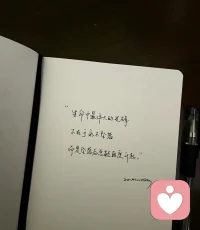 "生命中最伟大的光辉
不在于永不坠落
而是坠落后总能再度升起"